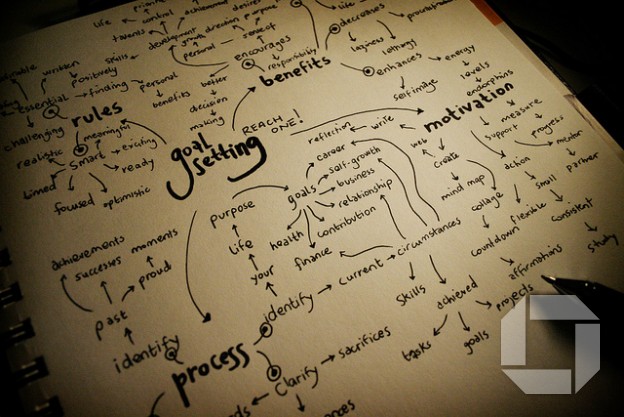 life
control
talents
development
direction
personal
sense of
encourages
responsibility
decreases
laziness
lethargy
procrastination
enhances
self image
energy
levels
endorphins
benefits
better
decision
making
written
positively
skills
essential
finding
personal
benefits
rules
challenging
meaningful
realistic
smart
exciting
ready
timed
focused
optimistic
goal
setting
REACH
ONE!
motivation
reflection
write
web
create
mind map
measure
support
progress
mentor
action
small
partner
collage
flexible
consistent
countdown
affirmations
study
career
self-growth
goals
business
relationship
contribution
health
finance
purpose
life
your
identify
current
circumstances
skills
achieved
projects
tasks
goals
achievements
successes
moments
proud
past
identify
process
clarify
sacrifices